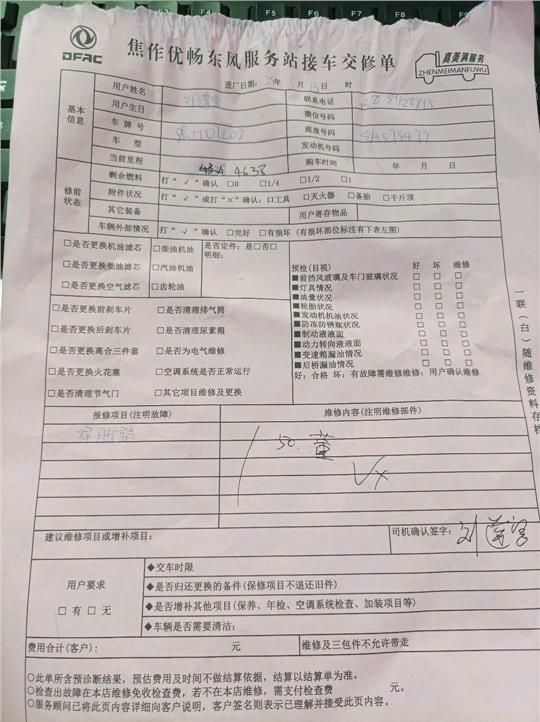 F5 F6 F7 F8 F9
DFAC
焦作优畅东风服务站接车交修单
真美满服务
ZHENMEIMANFUWU
进厂日期: 年 月 15日 时
基本信息
用户姓名 联系电话
用户生日 微信号码
车牌号 底盘号码
车型 发动机号码
当前里程 4638 购车时间 年 月 日
修前状态
剩余燃料 打“√”确认 □0 □1/4 □1/2 □1
附件状况 打“√”或打“×”确认:□工具 □灭火器 □备胎 □千斤顶
其它装备 用户寄存物品
车辆外部情况 打“√”确认 □完好 □有损坏 (有损坏部位标注有下表左图)
□是否更换机油滤芯 □柴油机油 是否定件: 是□否□
明细:
□是否更换柴油滤芯 □汽油机油
□是否更换空气滤芯 □齿轮油
预检(目视) 好 坏 维修
■前挡风玻璃及车门玻璃状况 □ □ □
■灯具情况 □ □ □
■油量状况 □ □ □
■轮胎状况 □ □ □
■发动机机油状况 □ □ □
■防冻防锈瓶状况 □ □ □
■制动液液面 □ □ □
■动力转向液液面 □ □ □
■变速箱漏油情况 □ □ □
■后桥漏油情况 □ □ □
好: 合格 坏: 有故障需维修维修: 用户确认维修
□是否更换前刹车片 □是否清理排气筒
□是否更换后刹车片 □是否清理尿素箱
□是否更换离合三件套 □是否为电气维修
□是否更换火花塞 □空调系统是否正常运行
□是否清理节气门 □其它项目维修及更换
一联(白)随维修资料存档
报修项目(注明故障) 维修内容(注明维修部件)
50.
建议维修项目或增补项目:
司机确认签字: 刘
用户要求
□有 □无
◆交车时限
◆是否归还更换的备件(保修项目不退还旧件)
◆是否增补其他项目(保养、年检、空调系统检查、加装项目等)
◆车辆是否需要清洁:
费用合计(客户): 元 维修及三包件不允许带走
○此单所含预诊断结果,预估费用及时间不做结算依据,结算以结算单为准。
○检查出故障在本店维修免收检查费,若不在本店维修,需支付检查费 元。
○服务顾问已将此页内容详细向客户说明,客户签名则表示已理解并接受此页内容。